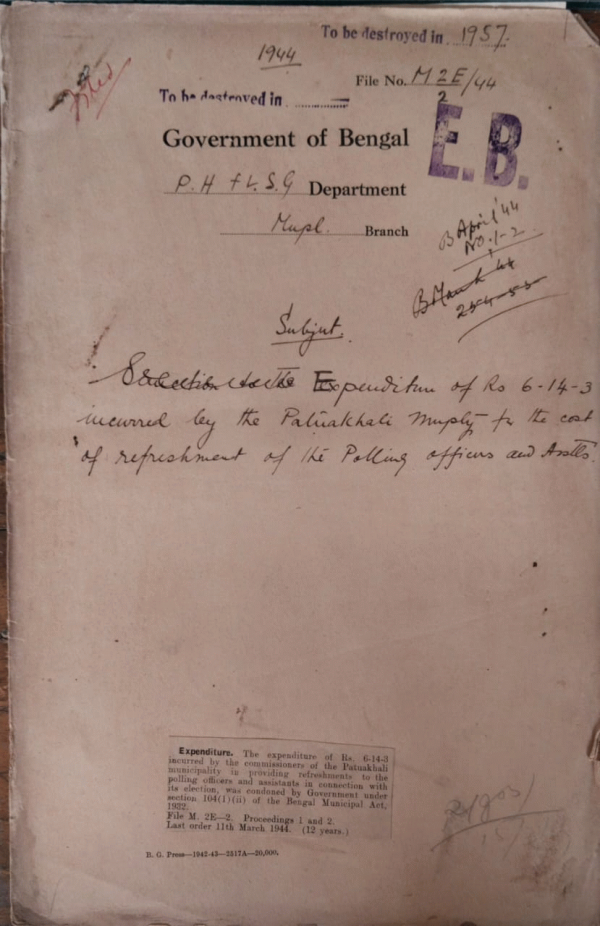 To be destroyed in 1957.
1944
File No. M 2E/44
2
To be destroyed in
Government of Bengal
E.B.
P. H & L. S. G Department
Mupl. Branch
B April '44
No. 1-2
B March 44
254-55
Subject.
Expenditure of Rs 6-14-3
incurred by the Patuakhali Muply for the cost
of refreshment of the Polling officers and Assts.
Expenditure. The expenditure of Rs. 6-14-3
incurred by the commissioners of the Patuakhali
municipality in providing refreshments to the
polling officers and assistants in connection with
its election, was condoned by Government under
section 104(1)(ii) of the Bengal Municipal Act,
1932.
File M. 2E—2. Proceedings 1 and 2.
Last order 11th March 1944. (12 years.)
B. G. Press—1942-43—3517A—20,000.